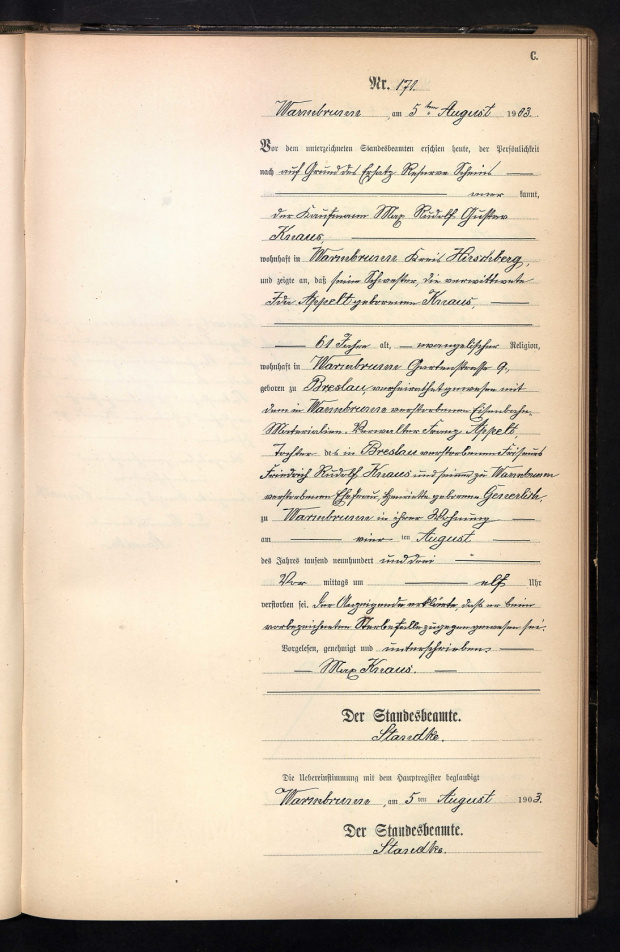 C.
Nr. 171.
Warmbrunn, am 5ten August 1903.
Vor dem unterzeichneten Standesbeamten erschien heute, der Persönlichkeit
nach auf Grund des Ersatz Reserve Scheins
aner kannt,
der Kaufmann Max Rudolf Gustav
Knaus,
wohnhaft in Warmbrunn Kreis Hirschberg,
und zeigte an, daß seine Schwester, die verwittwete
Ida Appelt geborenen Knaus,
61 Jahre alt, evangelischer Religion,
wohnhaft in Warmbrunn Gartenstrasse 9,
geboren zu Breslau, verheirathet gewesen mit
dem in Warmbrunn verstorbenen Eisenbahn-
Materialien-Verwalter Franz Appelt,
Tochter des in Breslau verstorbenen Friseurs
Friedrich Rudolf Knaus und seiner zu Warmbrunn
verstorbenen Ehefrau, Henriette geborene
zu Warmbrunn in ihrer Wohnung
am vier ten August
des Jahres tausend neunhundert und drei
Vor mittags um elf Uhr
verstorben sei. Der Anzeigende erklärte, daß er beim
vorbezeichneten Sterbefalle zugegen gewesen sei.
Vorgelesen, genehmigt und unterschrieben:
Max Knaus.
Der Standesbeamte.
Standke.
Die Uebereinstimmung mit dem Hauptregister beglaubigt
Warmbrunn, am 5ten August 1903.
Der Standesbeamte.
Standke.